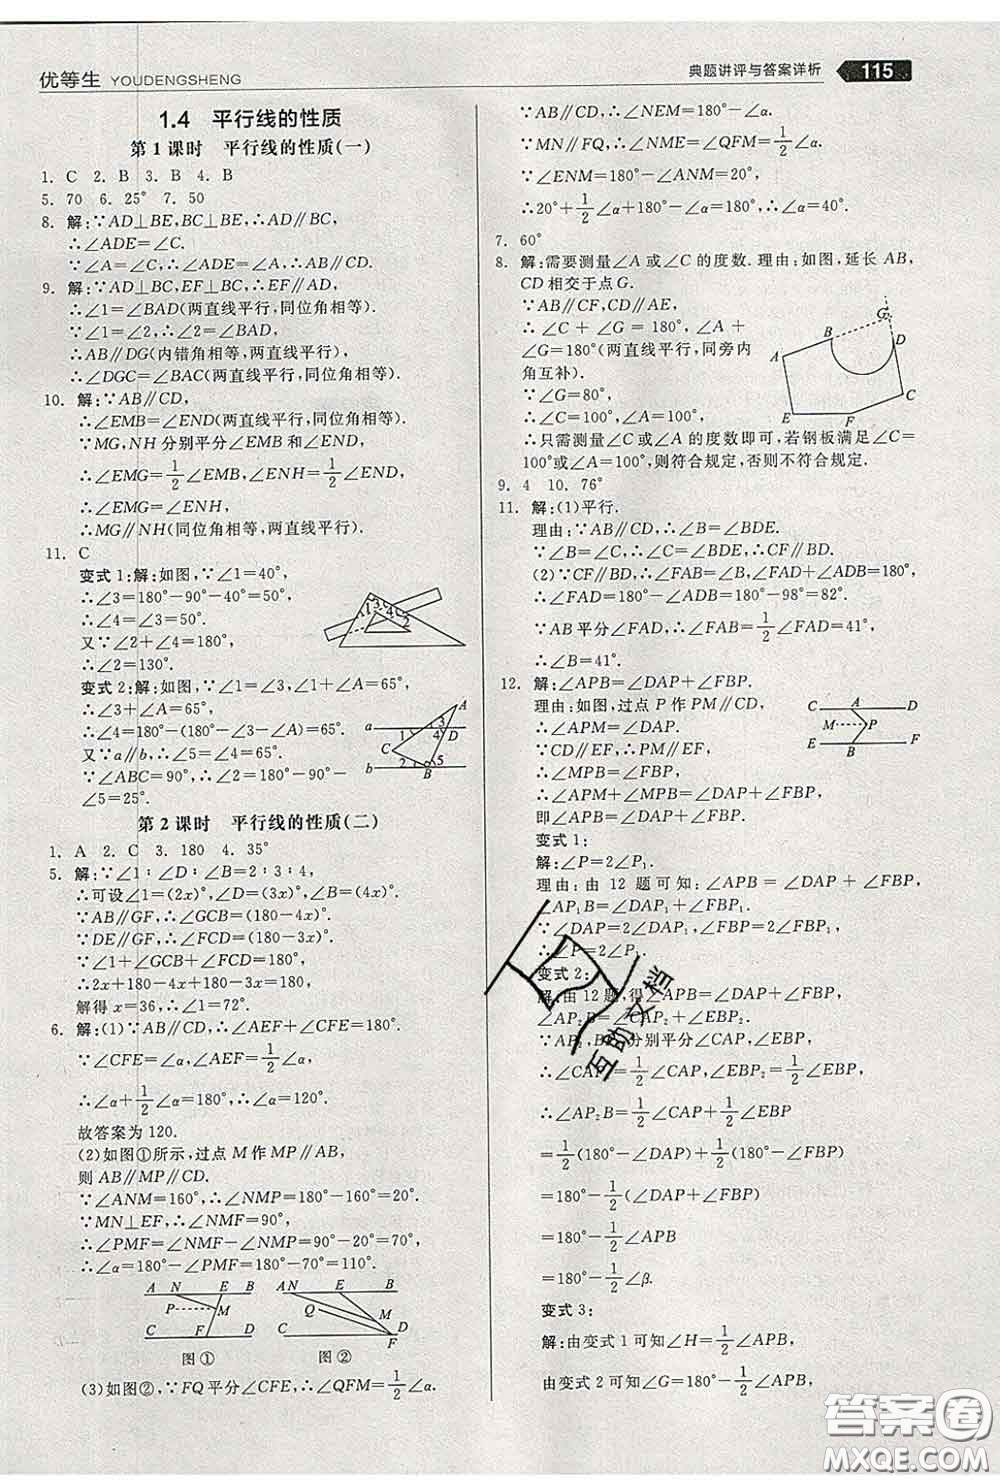 优等生 YOUDENGSHENG
典题讲评与答案详析 115
1.4 平行线的性质
第1课时 平行线的性质(一)
1. C 2. B 3. B 4. B
5. 70 6. 25° 7. 50
8. 解:∵AD⊥BE,BC⊥BE,∴AD∥BC,
∴∠ADE=∠C.
∵∠A=∠C,∴∠ADE=∠A,∴AB∥CD.
9. 解:∵AD⊥BC,EF⊥BC,∴EF∥AD,
∴∠1=∠BAD(两直线平行,同位角相等).
∵∠1=∠2,∴∠2=∠BAD,
∴AB∥DG(内错角相等,两直线平行),
∴∠DGC=∠BAC(两直线平行,同位角相等).
10. 解:∵AB∥CD,
∴∠EMB=∠END(两直线平行,同位角相等).
∵MG,NH分别平分∠EMB和∠END,
∴∠EMG=1/2∠EMB,∠ENH=1/2∠END,
∴∠EMG=∠ENH,
∴MG∥NH(同位角相等,两直线平行).
11. C
变式1:解:如图,∵∠1=40°,
∴∠3=180°-90°-40°=50°,
∴∠4=∠3=50°.
又∵∠2+∠4=180°,
∴∠2=130°.
1 3 4 2
变式2:解:如图,∵∠1=∠3,∠1+∠A=65°,
∴∠3+∠A=65°,
∴∠4=180°-(180°-∠3-∠A)=65°.
又∵a∥b,∴∠5=∠4=65°.
∵∠ABC=90°,∴∠2=180°-90°-
∠5=25°.
A a 1 3 4 D C b 2 5 B
第2课时 平行线的性质(二)
1. A 2. C 3. 180 4. 35°
5. 解:∵∠1∶∠D∶∠B=2∶3∶4,
∴可设∠1=(2x)°,∠D=(3x)°,∠B=(4x)°.
∵AB∥GF,∴∠GCB=(180-4x)°.
∵DE∥GF,∴∠FCD=(180-3x)°.
∵∠1+∠GCB+∠FCD=180°,
∴2x+180-4x+180-3x=180,
解得x=36,∴∠1=(2x)°=72°.
6. 解:(1)∵AB∥CD,∴∠AEF+∠CFE=180°.
∵∠CFE=∠α,∠AEF=1/2∠α,
∴∠α+1/2∠α=180°,∴∠α=120°.
故答案为120.
(2)如图①所示,过点M作MP∥AB,
则AB∥MP∥CD.
∵∠ANM=160°,∴∠NMP=180°-160°=20°.
∵MN⊥EF,∴∠NMF=90°,
∴∠PMF=∠NMF-∠NMP=90°-20°=70°,
∴∠α=180°-∠PMF=180°-70°=110°.
A N E B P M C F D
图①
A N E B Q M C D F
图②
(3)如图②,∵FQ平分∠CFE,∴∠QFM=1/2∠α.
∵AB∥CD,∴∠NEM=180°-∠α.
∵MN∥FQ,∴∠NME=∠QFM=1/2∠α.
∵∠ENM=180°-∠ANM=20°,
∴20°+1/2∠α=∠α,∴∠α=40°.
7. 60°
8. 解:需要测量∠A或∠C的度数.理由:如图,延长AB,
CD相交于点G.
∵AB∥CF,CD∥AE,
∴∠C+∠G=180°,∠A+
∠G=180°(两直线平行,同旁内
角互补).
∵∠G=80°,
∴∠C=100°,∠A=100°,
G B D A C E F
∴只需测量∠C或∠A的度数即可,若钢板满足∠C=
100°或∠A=100°,则符合规定,否则不符合规定.
9. 4 10. 76°
11. 解:(1)平行.
理由:∵AB∥CD,∴∠B=∠BDE.
∵∠B=∠C,∴∠C=∠BDE,∴FC∥BD.
(2)∵AB∥CD,∴∠FAB=∠C,∴∠FAB=∠B.
∵∠EAD=98°,∴∠FAD=180°-98°=82°.
∵AB平分∠FAD,∴∠FAB=1/2∠FAD=41°,
∴∠B=41°.
12. 解:∠APB=∠DAP+∠FBP.
理由:如图,过点P作PM∥CD,
∴∠APM=∠DAP.
∵CD∥EF,∴PM∥EF,
∴∠MPB=∠FBP,
∴∠APM+∠MPB=∠DAP+∠FBP,
即∠APB=∠DAP+∠FBP.
C A D M P E B F
变式1:
解:∠P=2∠P₁.
理由:由12题可知:∠APB=∠DAP+∠FBP,
∠AP₁B=∠DAP₁+∠FBP₁.
∵∠DAP=2∠DAP₁,∠FBP=2∠FBP₁,
∴∠P=2∠P₁.
变式2:
解:由12题,得∠APB=∠DAP+∠FBP,
∠AP₂B=∠CAP₂+∠EBP₂.
分别平分∠CAP,∠EBP,
∴∠CAP₂=1/2∠CAP,∠EBP₂=1/2∠EBP,
∴∠AP₂B=1/2∠CAP+1/2∠EBP
=1/2(180°-∠DAP)+1/2(180°-∠FBP)
=180°-1/2(∠DAP+∠FBP)
=180°-1/2∠APB
=180°-1/2∠β.
变式3:
解:由变式1可知∠H=1/2∠APB,
由变式2可知∠G=180°-1/2∠APB,
互助文档
答案圈
MXQE.COM